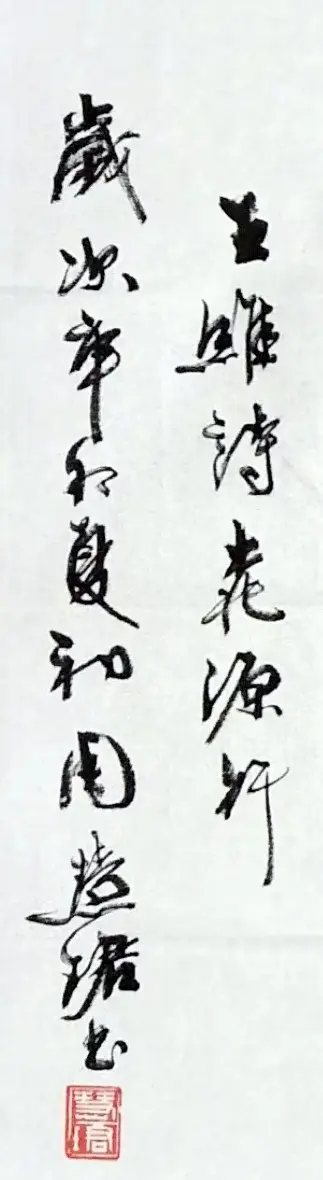 王維詩桃源行
歲次辛卯夏初周慧珺書
慧珺